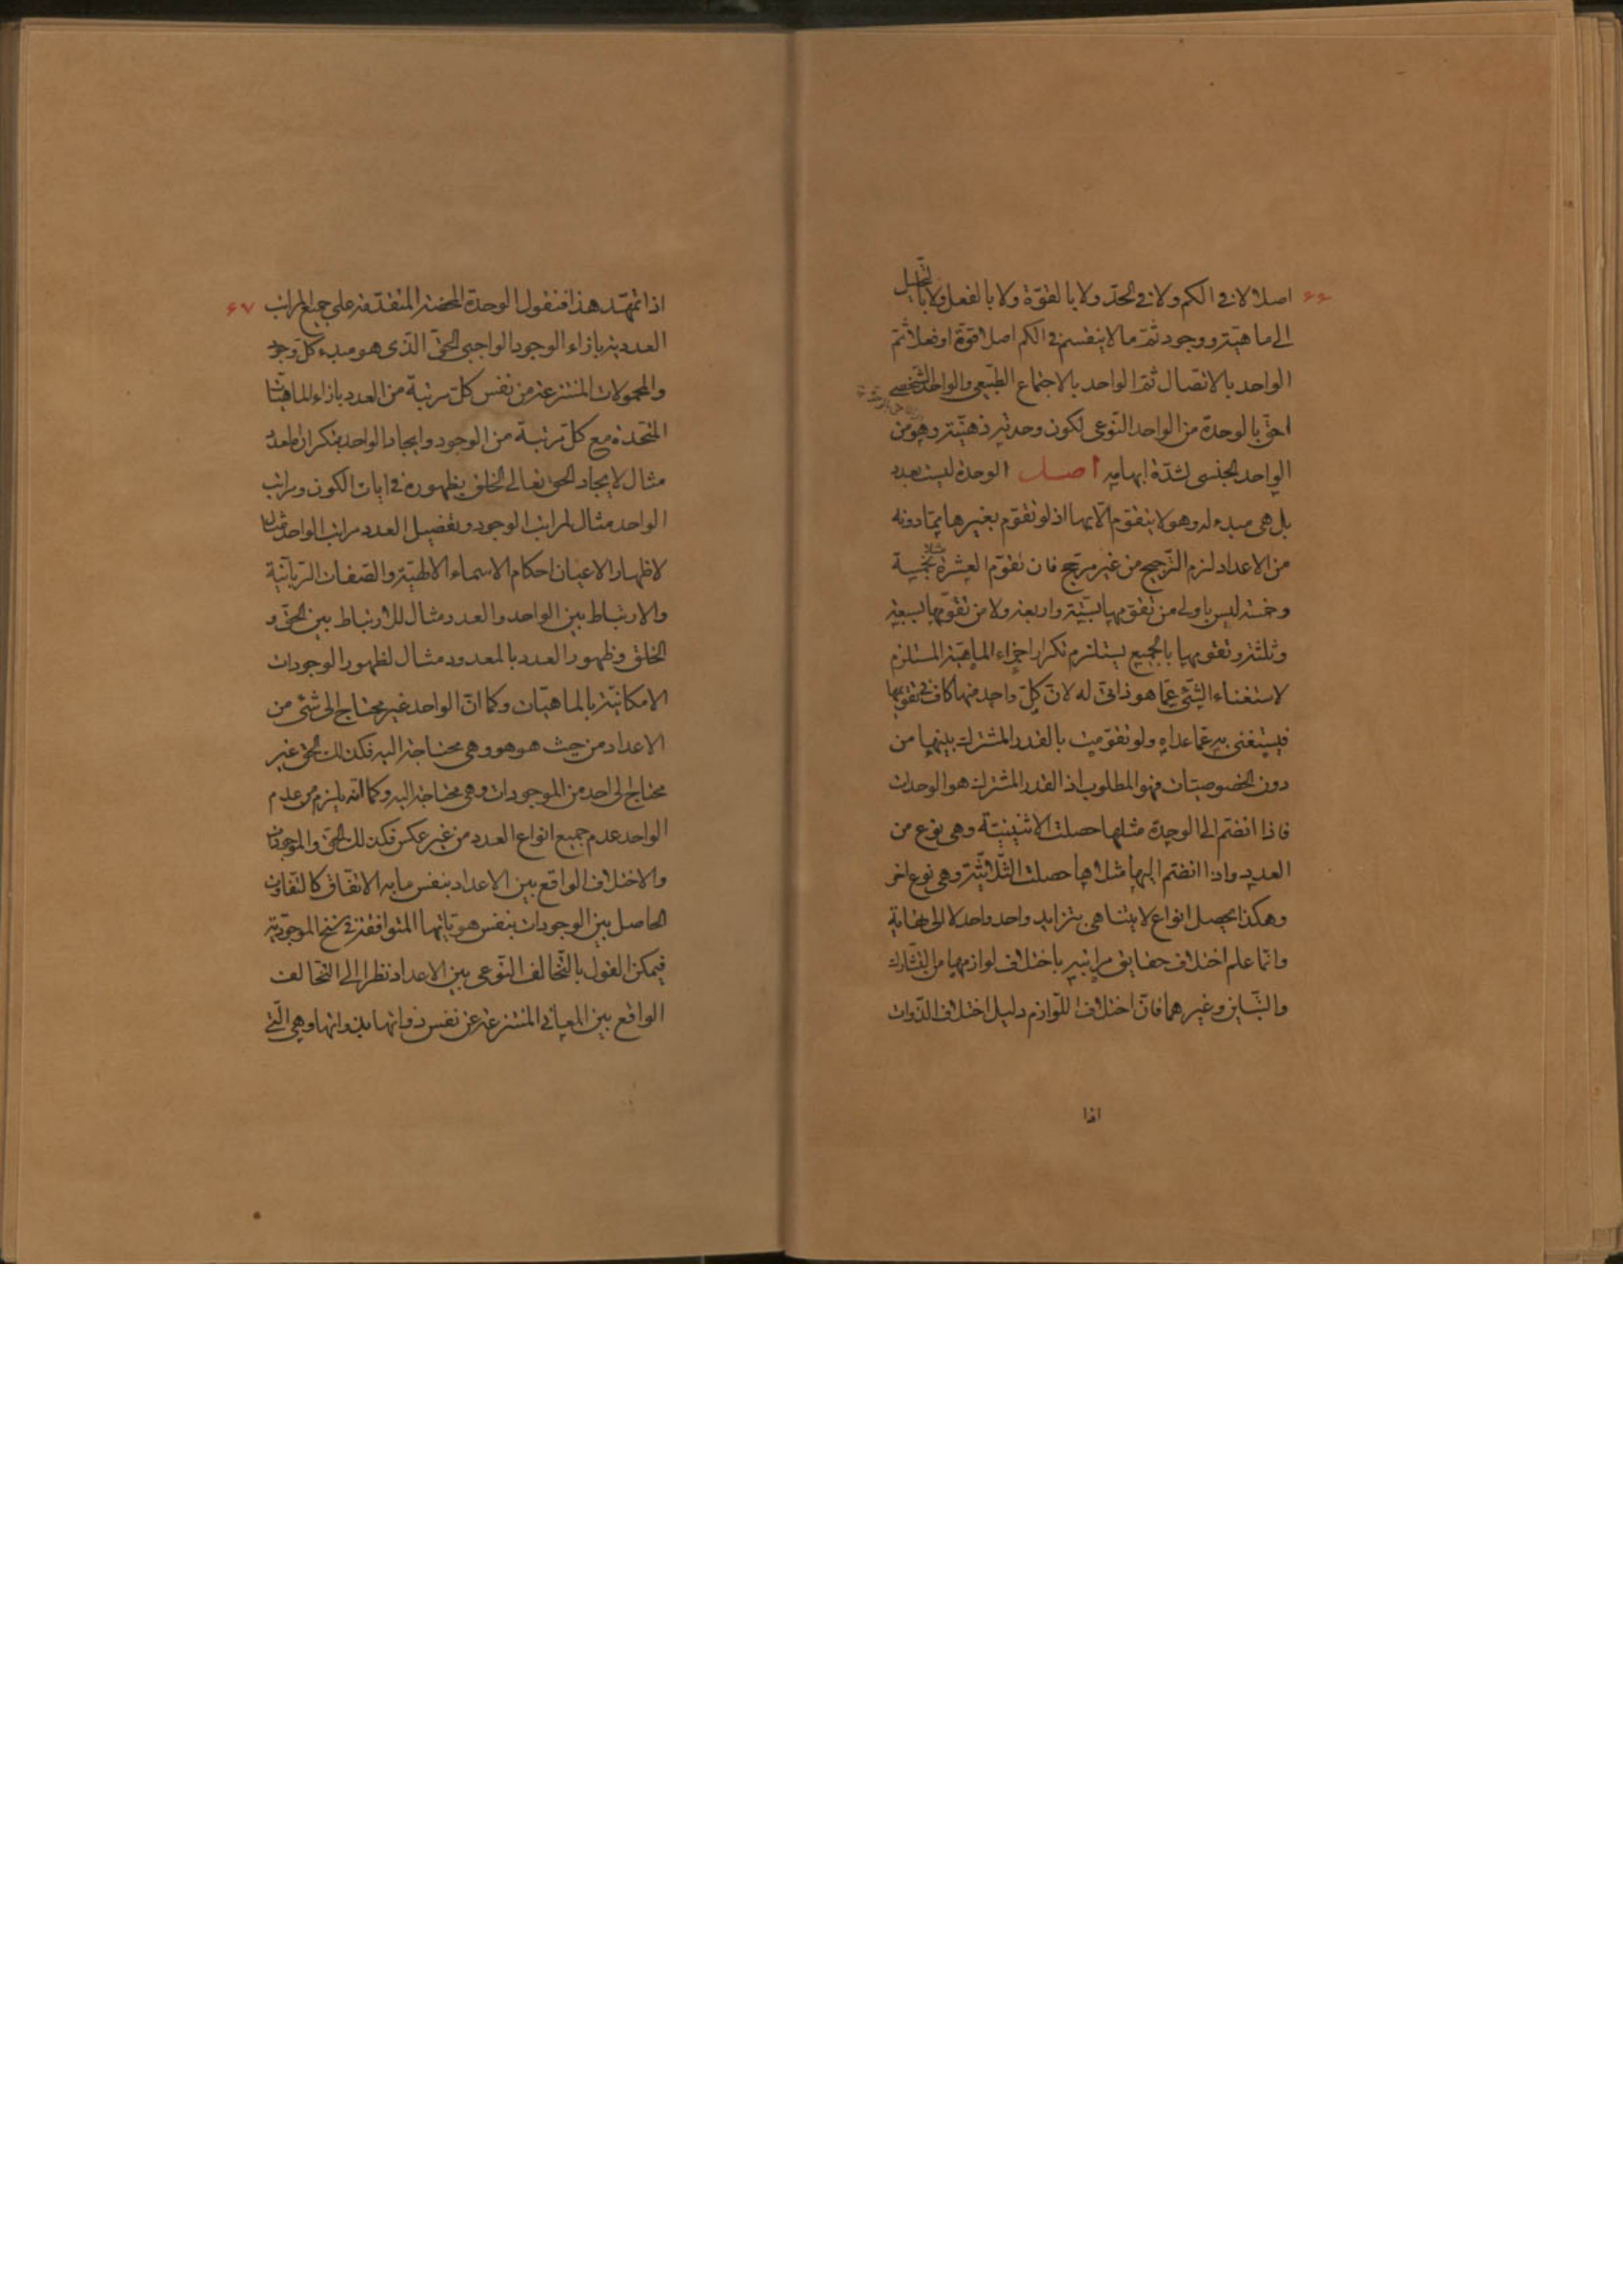 ۶۶
اصلا لا فی الکم ولا فی الحدّ ولا بالقوّة ولا بالفعل ولا بالتحلیل
الی ماهیّة ووجود ثمّ ما لا ینقسم فی الکم اصلا قوّة او فعلا ثمّ
الواحد بالاتصال ثمّ الواحد بالاجتماع الطّبیعی والواحد الشخصی
احقّ بالوحدة من الواحد النّوعی لکون وحدته ذهنیّة وهو من
الواحد الجنسی لشدّة ابهامه اصل الوحدة لیست بعدد
بل هی مبدء له وهو لا یتقوّم الّا بها اذ لو تقوّم بغیرها ممّا دونه
من الاعداد لزم التّرجیح من غیر مرجّح فان تقوّم العشرة مثلا بخمسة
وخمسة لیس باولی من تقوّمها بستّة واربعة ولا من تقوّمها بسبعة
وثلثة وتقومها بالجمیع یستلزم تکرار اجزاء الماهیّة المستلزم
لاستغناء الشّئ عمّا هو ذاتیّ له لانّ کلّ واحد منها کاف فی تقویمها
فیستغنی به عمّا عداه ولو تقوّمت بالقدر المشترک بینها من
دون الخصوصیّات فهو المطلوب اذ القدر المشترک هو الوحدات
فاذا انضمّ الی الوحدة مثلها حصلت الاثنینیّة وهی نوع من
العدد واذا انضمّ الیها مثلاها حصلت الثّلاثیّة وهی نوع اخر
وهکذا یحصل انواع لا یتناهی بتزاید واحد واحد لا الی نهایة
وانّما علم اختلاف حقایق مراتبه باختلاف لوازمها من التّشارک
والتّباین وغیرهما فانّ اختلاف اللّوازم دلیل اختلاف الذّوات
اذا
۶۷
اذا تمهّد هذا فنقول الوحدة المحضة المتقدّمة علی جمیع المراتب
العددیة بازاء الوجود الواجبی الحقّ الّذی هو مبدء کلّ وجود
والمحمولات المنتزعة من نفس کلّ مرتبة من العدد بازاء الماهیّات
المتّحدة مع کلّ مرتبة من الوجود وایجاد الواحد بتکراره العدد
مثال لایجاد الحق تعالی الخلق بظهوره فی ایات الکون ومراتب
الواحد مثال لمراتب الوجود وتفصیل العدد مراتب الواحد مثال
لاظهار الاعیان احکام الاسماء الالهیّة والصّفات الرّبانیّة
والارتباط بین الواحد والعدد مثال للارتباط بین الحقّ و
الخلق وظهور العدد بالمعدود مثال لظهور الوجودات
الامکانیّة بالماهیّات وکما انّ الواحد غیر محتاج الی شئ من
الاعداد من حیث هو هو وهی محتاجة الیه فکذلک الحق غیر
محتاج الی احد من الموجودات وهی محتاجة الیه وکما انّه یلزم من عدم
الواحد عدم جمیع انواع العدد من غیر عکس فکذلک الحقّ والموجودات
والاختلاف الواقع بین الاعداد بنفس ما به الاتّفاق کالتفاوت
الحاصل بین الوجودات بنفس هویّاتها المتوافقة فی سنخ الموجودیّة
فیمکن القول بالتّخالف النّوعی بین الاعداد نظرا الی التخالف
الواقع بین المعانی المنتزعة عن نفس ذواتها بذواتها وهی الّتی